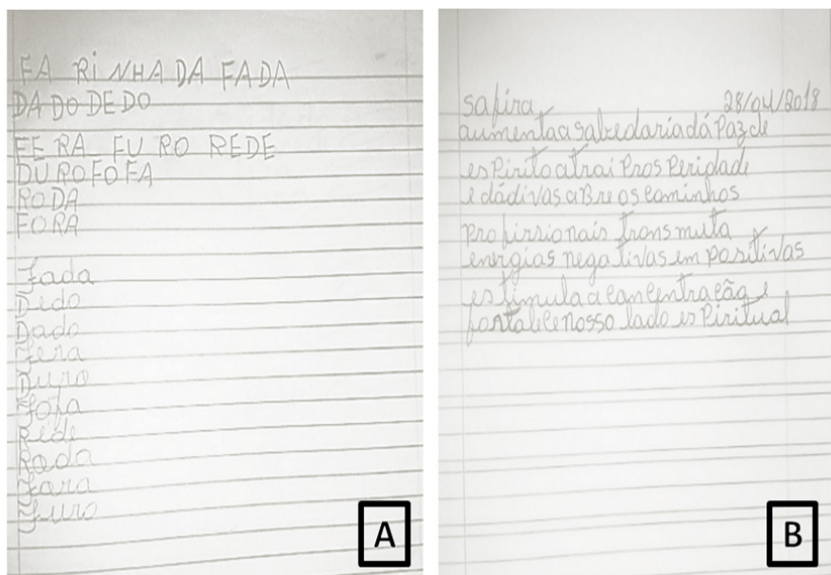 FA RiNHA DA FADA
DA DO DE DO
FE RA FU RO REDE
DURO FO FA
RODA
FORA
Fada
Dedo
Dado
Fera
Duro
Fofa
Rede
Roda
Fara
Furo
A
safira 28/04/2018
aumenta a sabedaria dá Paz de
es Pirito atrai Pros Peridade
e dádivas aBre os caminhos
profissionais transmuta
energias negativas em positivas
estimula a concentração e
fortalece nosso lado es Piritual
B